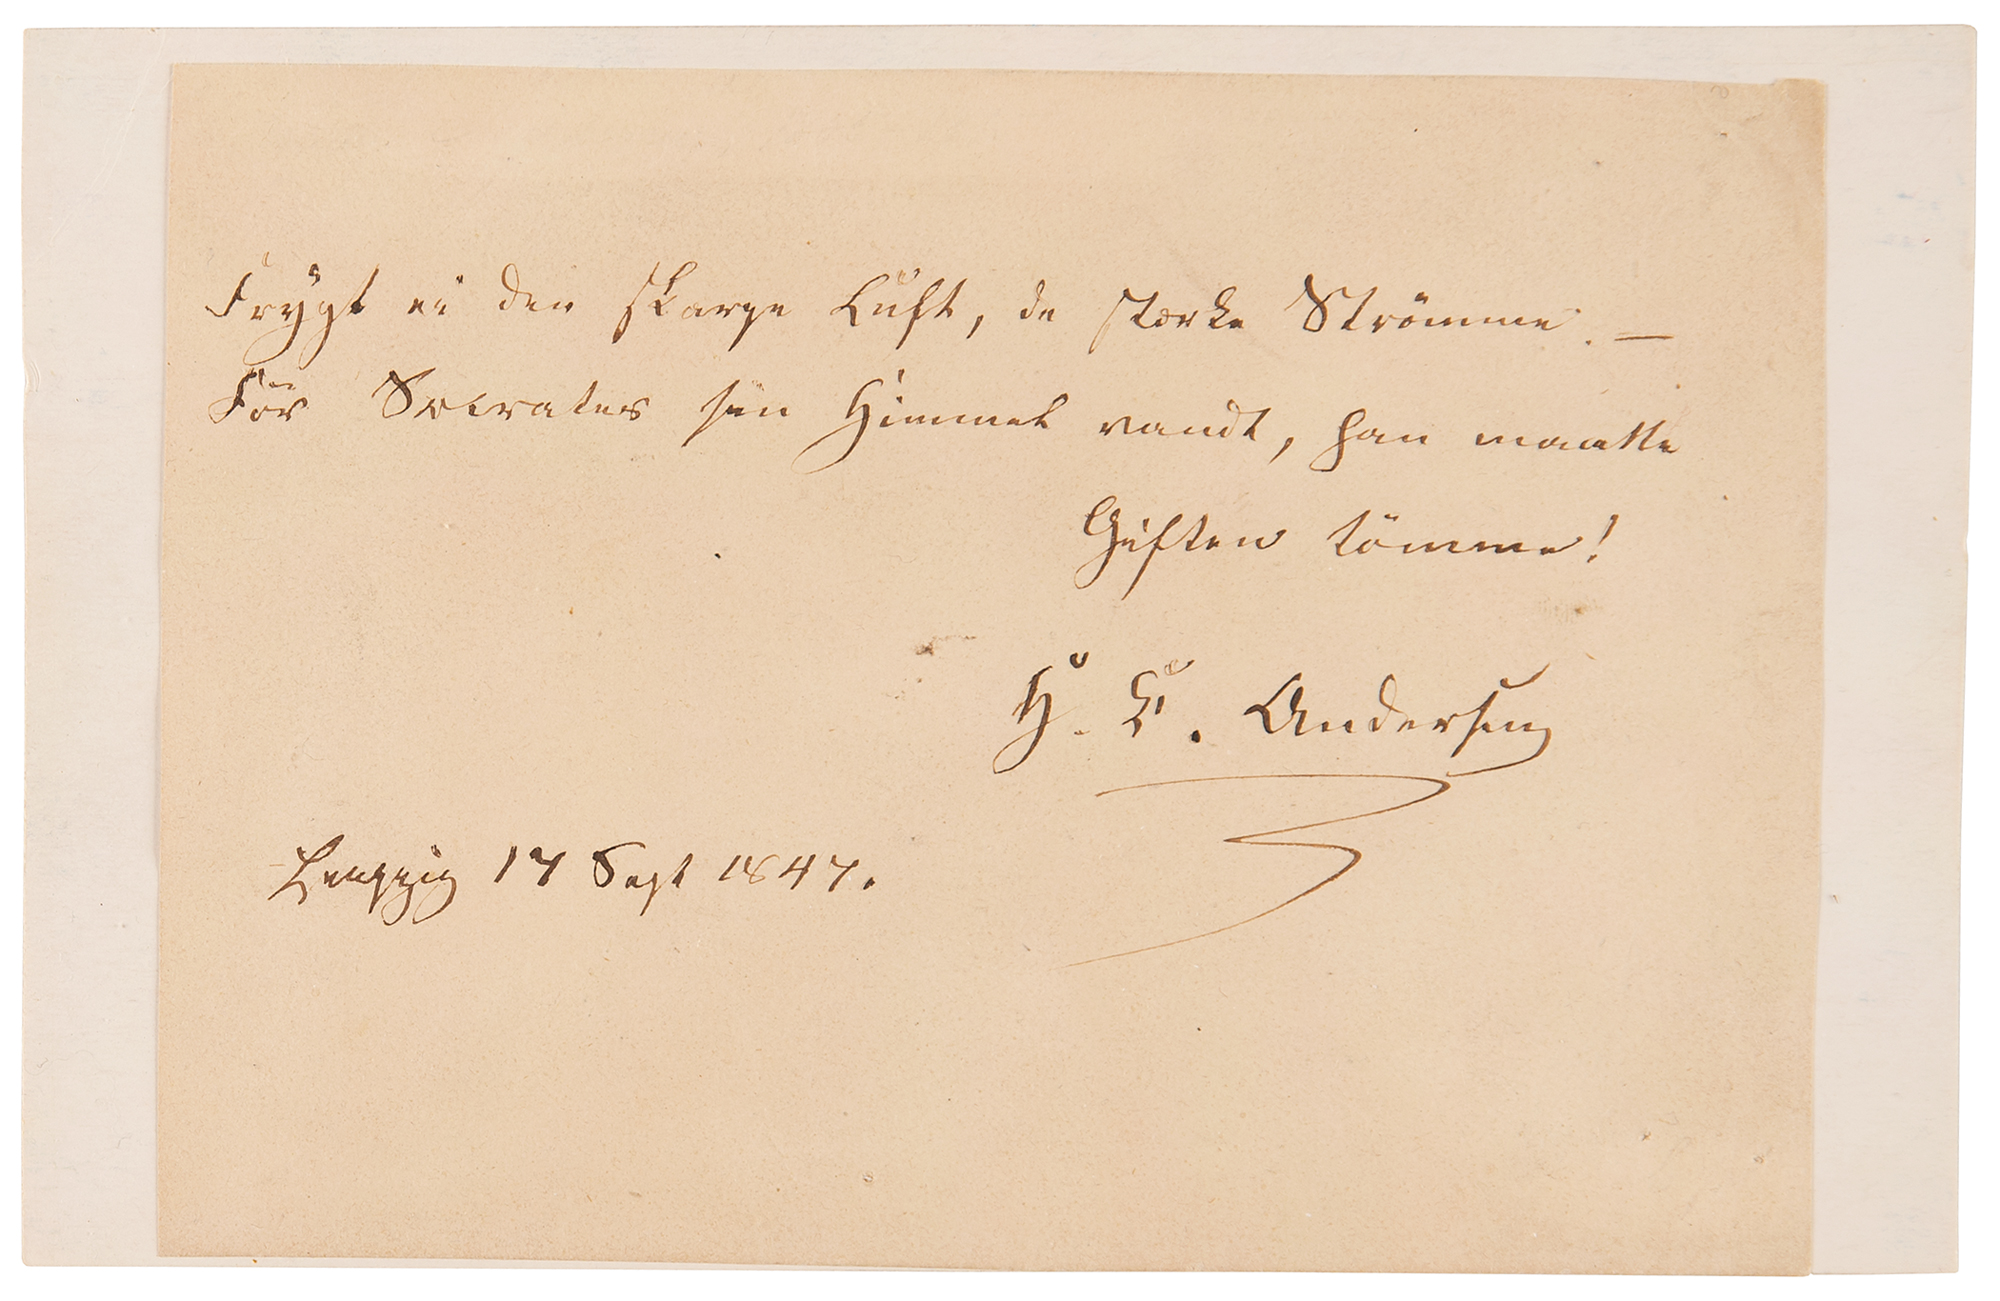 Frygt ei den skarpe Luft, de stærke Strömme. —
För Socrates sin Himmel vandt, han maatte
Giften tömme!
H. C. Andersen
Leipzig 17 Sept 1847.